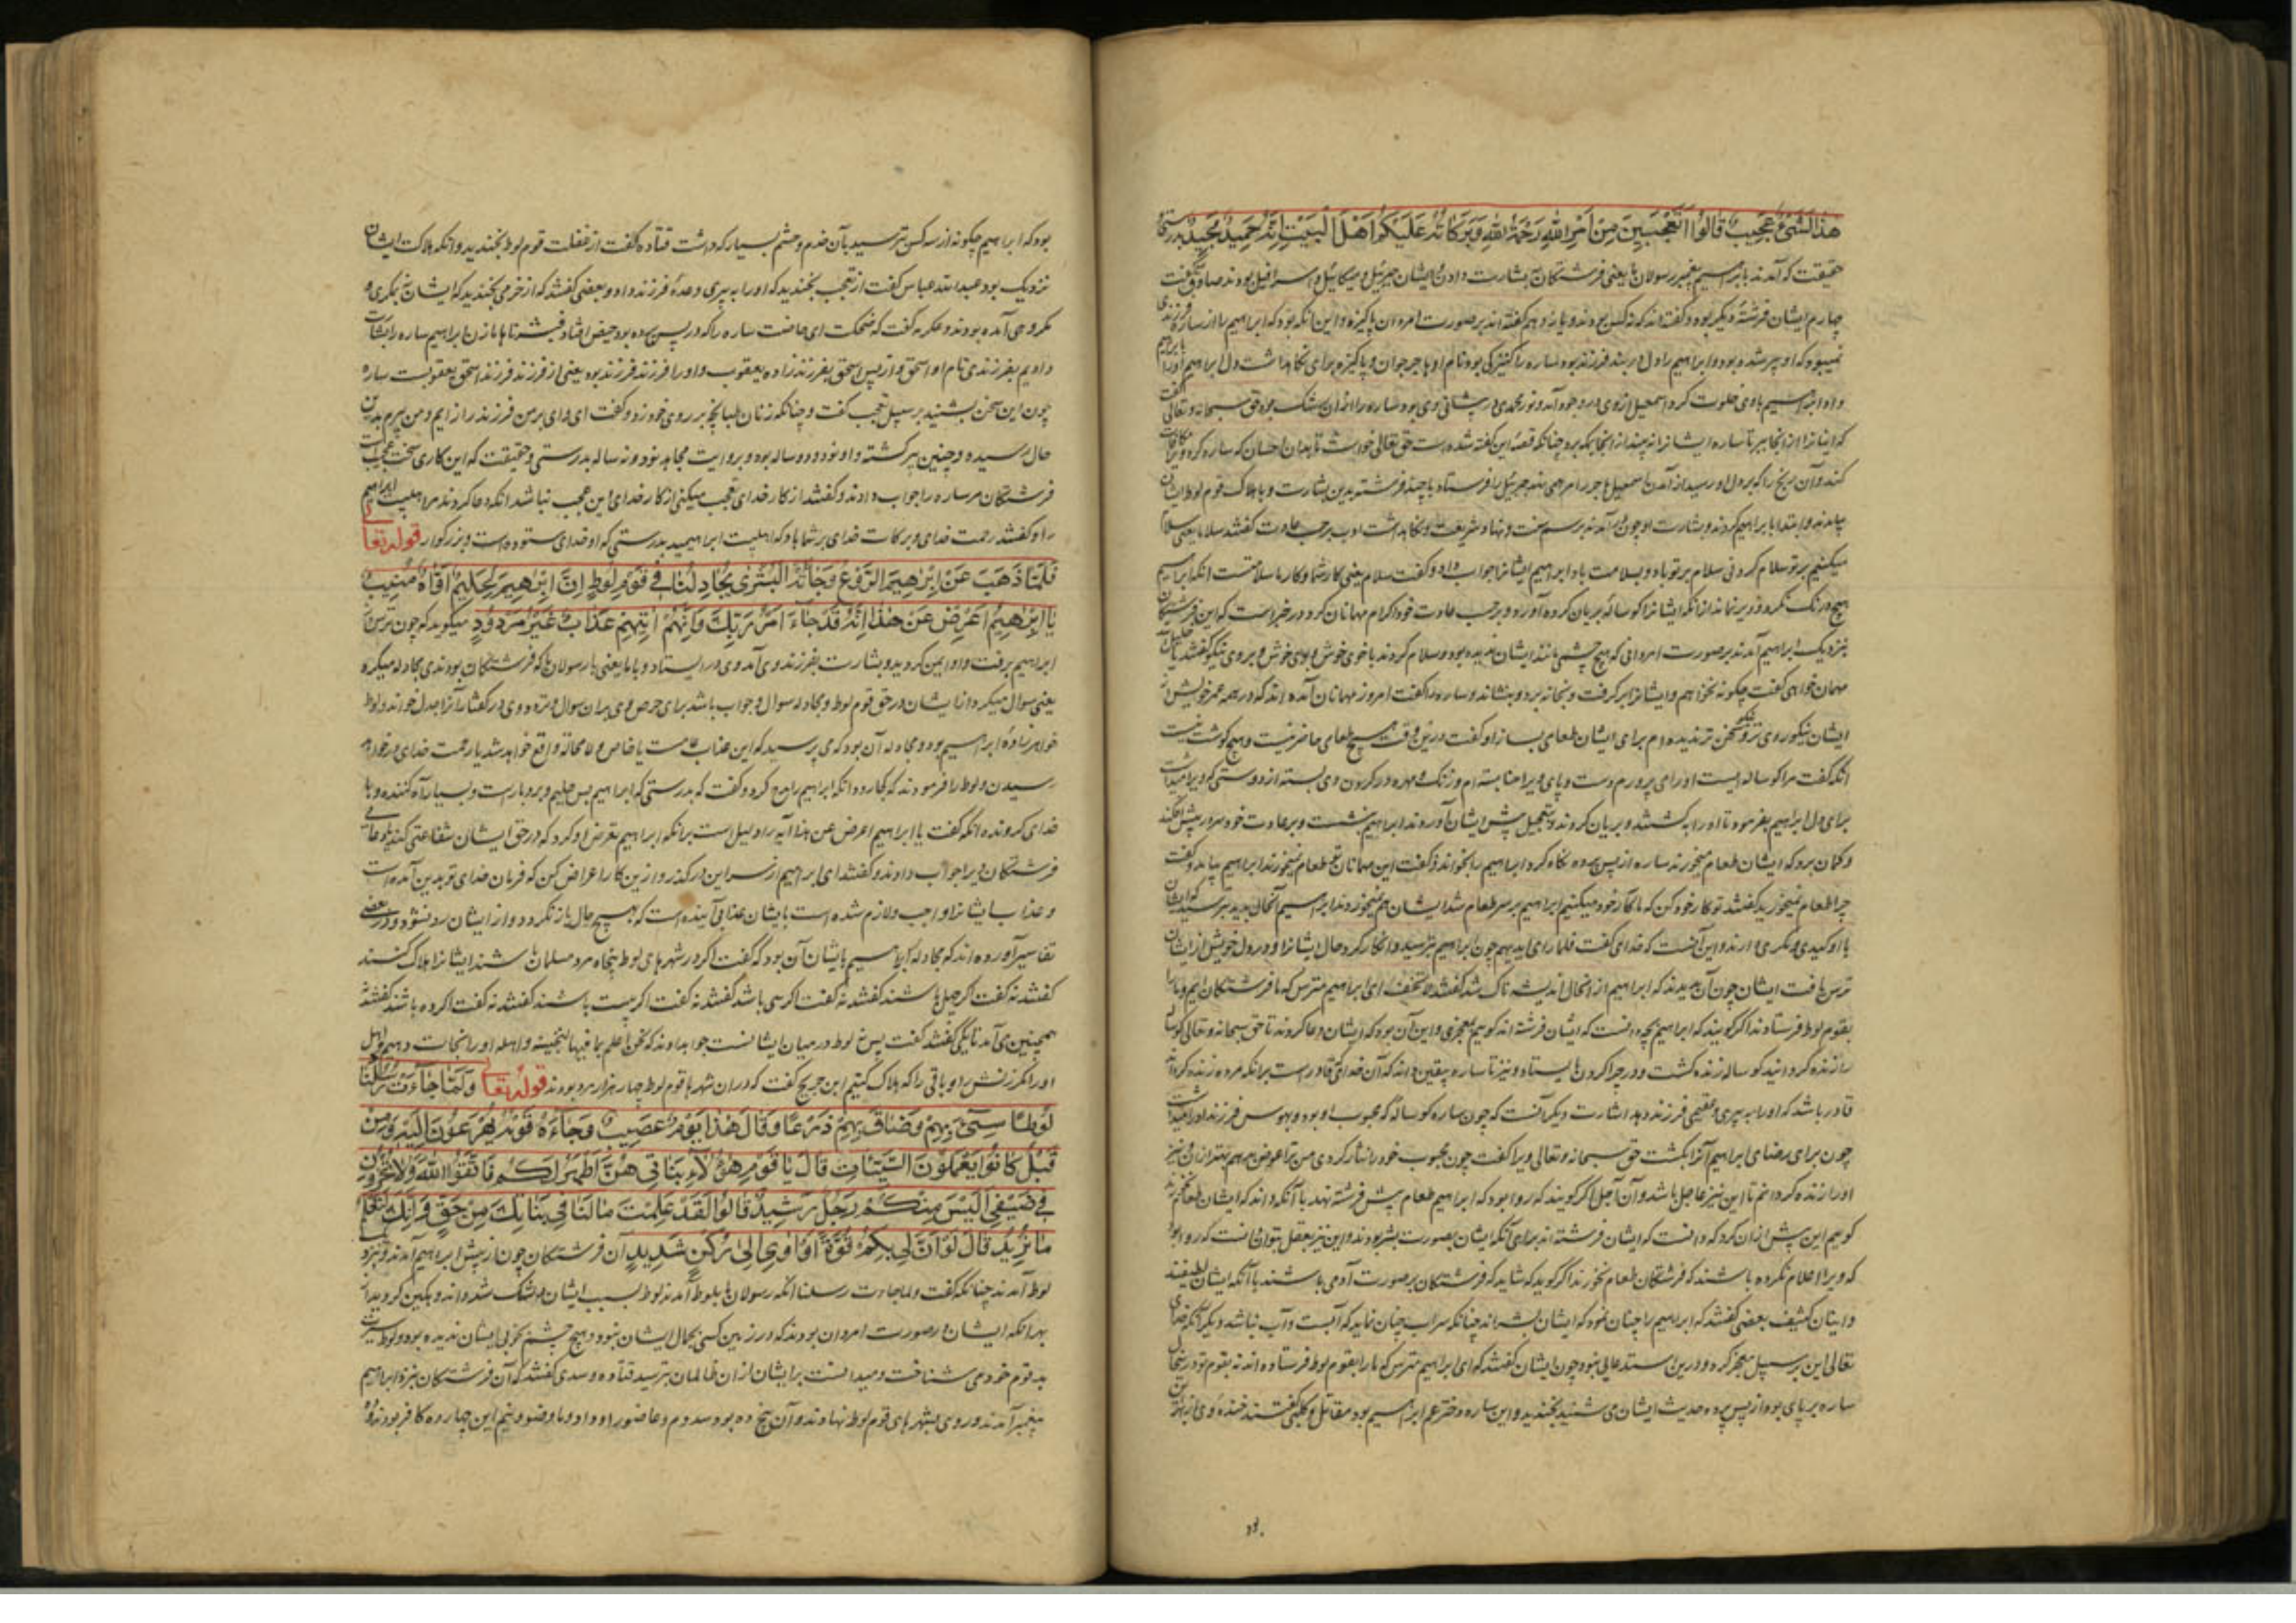 هذا لشیء عجیب قالوا اتعجبین من امر الله رحمة الله وبرکاته علیکم اهل البیت انه حمید مجید بدرستی
حقیقت که آمدند بابراهیم پیغمبر رسولان ما یعنی فرشتکان به بشارت دادن و ایشان جبرئیل و میکائیل و اسرافیل بودند
چهارم ایشان فرشتهٔ دیکر بوده و کفته اند که نه کس بودند و یازده هم کفته اند بر صورت امردان پاکیزه و این انکه بود که ابراهیم را از ساره فرزندی
نمیبود که او پیر شده بود و ابراهیم را دل در بند فرزند بود ساره را کنیزکی بود نام او هاجر جوان و پاکیزه برای نکاهداشت دل ابراهیم او را
داد ابراهیم باوی خلوت کرد اسمعیل از وی در وجود آمد و نور محمدی در پیشانی وی بود ساره را از آن رشک بود حق سبحانه و تعالی
که اینانرا از انجا ببر تا ساره ایشانرا نه بیند از انجا بکه برد چنانکه قصهٔ این کفته شده است حق تعالی خواست تا بدان احسان که ساره کرد
کند و آن رنج را که بر دل او رسید از آمدن اسمعیل جبرئیل را فرستاد با چند فرشته بدین بشارت و بهلاک قوم لوط ایشان
بیامدند و ابتدا بابراهیم کردند و بشارت او چون در آمدند برسم سنت و نهاد شریعت و نکاهداشت ادب برحسب عادت کفتند سلاما یعنی سلام
میکنیم بر تو سلام کردنی سلام بر تو باد و بسلامت باد ابراهیم ایشانرا جواب داد و کفت سلام یعنی کار شما و کار ما سلامتست انکه ابراهیم
هیچ درنک نکرد و دیر نماند از انکه ایشانرا کوسالهٔ بریان کرده آورد و برحسب عادت خود اکرام مهمانان کرد در خبر است که این فرشتکان
بنزدیک ابراهیم آمدند بر صورت امردانی که هیچ چشمی مانند ایشان ندیده بود و سلام کردند با خوی خوش و بوی خوش و بروی نیکو کفتند
مهمان خواهی کفت چکونه نخواهم و ایشانرا برکرفت و بخانه برد و بنشاند و ساره را کفت امروز مهمانان آمده اند که در همه عمر خویش از
ایشان نیکو روی تر و خوش سخن تر ندیده ام برای ایشان طعامی بساز او کفت درین وقت هیچ طعامی حاضر نیست و هیچ کوشت نیست
انکه کفت مرا کوساله ایست او را می پرورم دست و پای ویرا حنا بسته ام و زنک و مهره در کردن وی بسته از دوستی که ویرا میداشت
برای دل ابراهیم بفرمود تا او را بکشتند و بریان کردند و بتعجیل پیش ایشان آوردند ابراهیم بنشست و بر عادت خود سر در پیش افکند
و کمان برد که ایشان طعام میخورند ساره از پس پرده نکاه کرد ابراهیم را بخواند و کفت این مهمانان تو طعام نمیخورند ابراهیم بیامد و کفت
چرا طعام نمیخورید کفتند تو کار خود کن که ما کار خود میکنیم ابراهیم بر سر طعام شد ایشان هم نمیخوردند ابراهیم آنحال بدید بترسید که ایشان
با او کیدی و مکری دارند و این آنست که خدای کفت فلما رای ایدیهم چون ابراهیم بترسید و انکار کرد حال ایشانرا و در دل خویش از ایشان
ترس یافت ایشان چون آن بدیدند که ابراهیم از انحال اندیشه ناک شد کفتند لا تخف ای ابراهیم مترس که ما فرشتکانیم و ما را
بقوم لوط فرستادند اکر کویند که ابراهیم بچه دانست که ایشان فرشته اند کوییم بمعجزی و این آن بود که ایشان دعا کردند تا حق سبحانه و تعالی کوساله
را زنده کردانید کوساله زنده کشت و در چرا کردن بایستاد و نیز تا ساره بیقین داند که آن خدای که قادر است برانکه مرده زنده کرداند
قادر باشد که او را به پیری و عقیمی فرزند دهد اشارت دیکر آنست که چون ساره کوسالهٔ که محبوب او بود و بهوس فرزند او را میداشت
چون برای رضای ابراهیم آنرا بکشت حق سبحانه و تعالی ویرا کفت چون محبوب خود را نثار کردی من ترا عوض بدهم بهتر از آن و نیز
او را زنده کردانم تا این نیز عاجل باشد و آن آجل اکر کویند که روا بود که ابراهیم طعام پیش فرشته نهد با آنکه داند که ایشان طعام نخورند
کوییم این پیش از ان کرد که دانست که ایشان فرشته اند برای آنکه ایشان بصورت بشر بودند و این نیز بعقل بتوان دانست که روا بود
که ویرا اعلام نکرده باشند که فرشتکان طعام نخورند اکر کوید که شاید که فرشتکان بر صورت آدمی باشند با آنکه ایشان لطیفند
و اینان کثیف بعضی کفتند که ابراهیم را چنان نمود که ایشان بشرند چنانکه سراب چنان نماید که آبست و آب نباشد و دیکر آنکه خدای
تعالی این بر سبیل معجز کرده و درین استدعالی نبود چون ایشان کفتند که ای ابراهیم مترس که ما را بقوم لوط فرستاده اند نه بقوم تو در انحال
ساره بر پای بود از پس پرده حدیث ایشان می شنید بخندید و این ساره دختر عم ابراهیم بود مقاتل و کلبی کفتند خندهٔ وی از بهر آن
بود که ابراهیم چکونه از سه کس بترسید بآن خدم و حشم بسیار که داشت قتاده کفت از غفلت قوم لوط بخندید و انکه هلاکت ایشان
نزدیک بود عبدالله عباس کفت از تعجب بخندید که او را به پیری وعدهٔ فرزند داد و بعضی کفتند که از خرمی بخندید که ایشان نه بمکری و
مکروهی آمده بودند و عکرمه کفت که ضحکت ای حاضت ساره را که در پس پرده بود حیض افتاد فبشرناها ما زن ابراهیم ساره را بشارت
دادیم بفرزندی نام او اسحق و از پس اسحق بفرزندزاده یعقوب و او را فرزند فرزند بود یعنی از فرزند فرزند اسحق یعقوبست ساره
چون این سخن بشنید بر سبیل تعجب کفت و چنانکه زنان طبانچه بر روی خود زد و کفت ای وای بر من فرزند را زایم و من پیرم بدین
حال رسیده و چنین پیر کشته و او نود و دو ساله بود و بروایت مجاهد نود و نه ساله بدرستی و حقیقت که این کاری سخت عجیب است
فرشتکان مر ساره را جواب دادند و کفتند از کار خدای تعجب میکنی از کار خدای این عجب نباشد انکه دعا کردند مر اهلبیت ابراهیم
را و کفتند رحمت خدای و برکات خدای بر شما باد که اهلبیت ابراهیمید بدرستی که او خدای ستوده است و بزرکوار قوله تعالی
فلما ذهب عن ابرهیم الروع وجاءته البشری یجادلنا فی قوم لوط ان ابرهیم لحلیم اواه منیب
یا ابرهیم اعرض عن هذا انه قد جاء امر ربک وانهم اتیهم عذاب غیر مردود میکوید که چون ترس از
ابراهیم برفت و او ایمن کردید و بشارت بفرزند وی آمد وی در ایستاد و با ما یعنی با رسولان ما که فرشتکان بودندی مجادله میکرد
یعنی سوال میکرد از ایشان در حق قوم لوط و مجادله سوال و جواب باشد برای حرص وی بران سوال و تردد وی در کفتار آنرا جدل خواند و لوط
خواهرزادهٔ ابراهیم بود و مجادله آن بود که می پرسید که این عذاب عامست یا خاص و لا محاله واقع خواهد شد یا رحمت خدای در خواهد
رسیدن و لوط را فرمودند که کجا رود انکه ابراهیم را مدح کرد و کفت که بدرستی که ابراهیم بس حلیم و بردبارست و بسیار آه کننده و با
خدای کرونده انکه کفت یا ابراهیم اعرض عن هذا آیه را دلیل است برانکه ابراهیم تعرض او کرد که در حق ایشان شفاعتی کند یا دعائی
فرشتکان ویرا جواب دادند و کفتند ای ابراهیم از سر این در کذر و ازین کار اعراض کن که فرمان خدای تو بدین آمده است
و عذاب ایشانرا واجب و لازم شده است بایشان عذابی آینده است که بهیچ حال باز نکردد و از ایشان رد نشود و در بعضی
تفاسیر آورده اند که مجادله ابراهیم با ایشان آن بود که کفت اکر در شهرهای لوط پنجاه مرد مسلمان باشند ایشانرا هلاک کنند
کفتند نه کفت اکر چهل باشند کفتند نه کفت اکر سی باشد کفتند نه کفت اکر بیست باشند کفتند نه کفت اکر ده باشند کفتند نه
همچنین می آمد تا یکی کفتند کفت پس لوط در میان ایشانست جواب دادند که نحن اعلم بما فیها لننجینه واهله او را نجات دهیم و اهل
او را مکر زنش را و باقی را که هلاک کنیم ابن جریح کفت که در ان شهرها قوم لوط چهار هزار مرد بودند قوله تعالی ولما جاءت رسلنا
لوطا سیء بهم وضاق بهم ذرعا وقال هذا یوم عصیب وجاءه قومه یهرعون الیه ومن
قبل کانوا یعملون السیئات قال یا قوم هؤلاء بناتی هن اطهر لکم فاتقوا الله ولا تخزون
فی ضیفی الیس منکم رجل رشید قالوا لقد علمت ما لنا فی بناتک من حق وانک لتعلم
ما نرید قال لو ان لی بکم قوة او اوی الی رکن شدید آن فرشتکان چون از پیش ابراهیم آمدند و نزد
لوط آمدند چنانکه کفت ولما جاءت رسلنا انکه رسولان ما بلوط آمدند لوط بسبب ایشان دلتنک شد و اندوهکین کردید از
بهر انکه ایشان در صورت امردان بودند که در زمین کسی بجمال ایشان نبود و هیچ چشم بخوبی ایشان ندیده بود و لوط سیرت
بد قوم خود می شناخت و میدانست بر ایشان از ان ظالمان بترسید قتاده و سدی کفتند که آن فرشتکان نزد ابراهیم
پیغمبر آمدند و روی بشهرهای قوم لوط نهادند و آن پنج ده بود سدوم و عاضورا و وادوما و ضبو و پنجم این چهار ده کافر بودند و